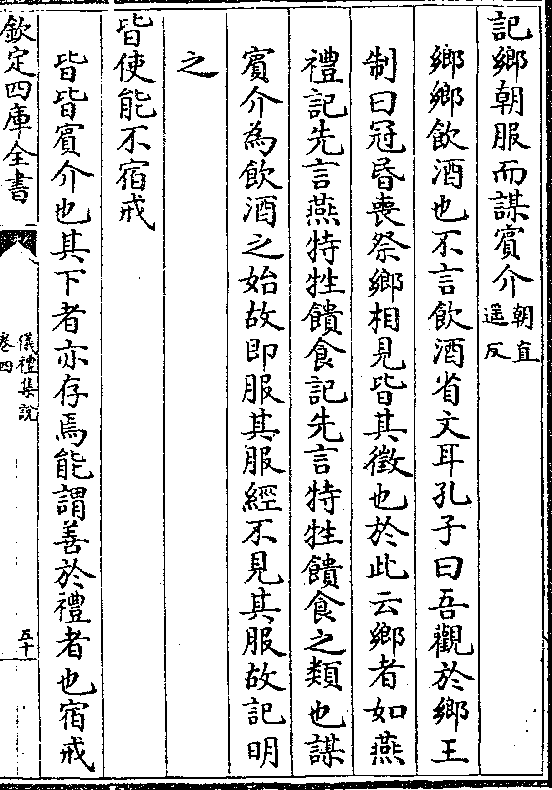 記鄉朝服而謀賓介朝直遥反
鄉鄉飲酒也不言飲酒省文耳孔子曰吾觀於鄉王
制曰冠昏喪祭鄉相見皆其徵也於此云鄉者如燕
禮記先言燕特牲饋食記先言特牲饋食之類也謀
賓介為飲酒之始故即服其服經不見其服故記明
之
皆使能不宿戒
皆皆賓介也其下者亦存焉能謂善於禮者也宿戒
欽定四庫全書
儀禮集說
卷四
五十